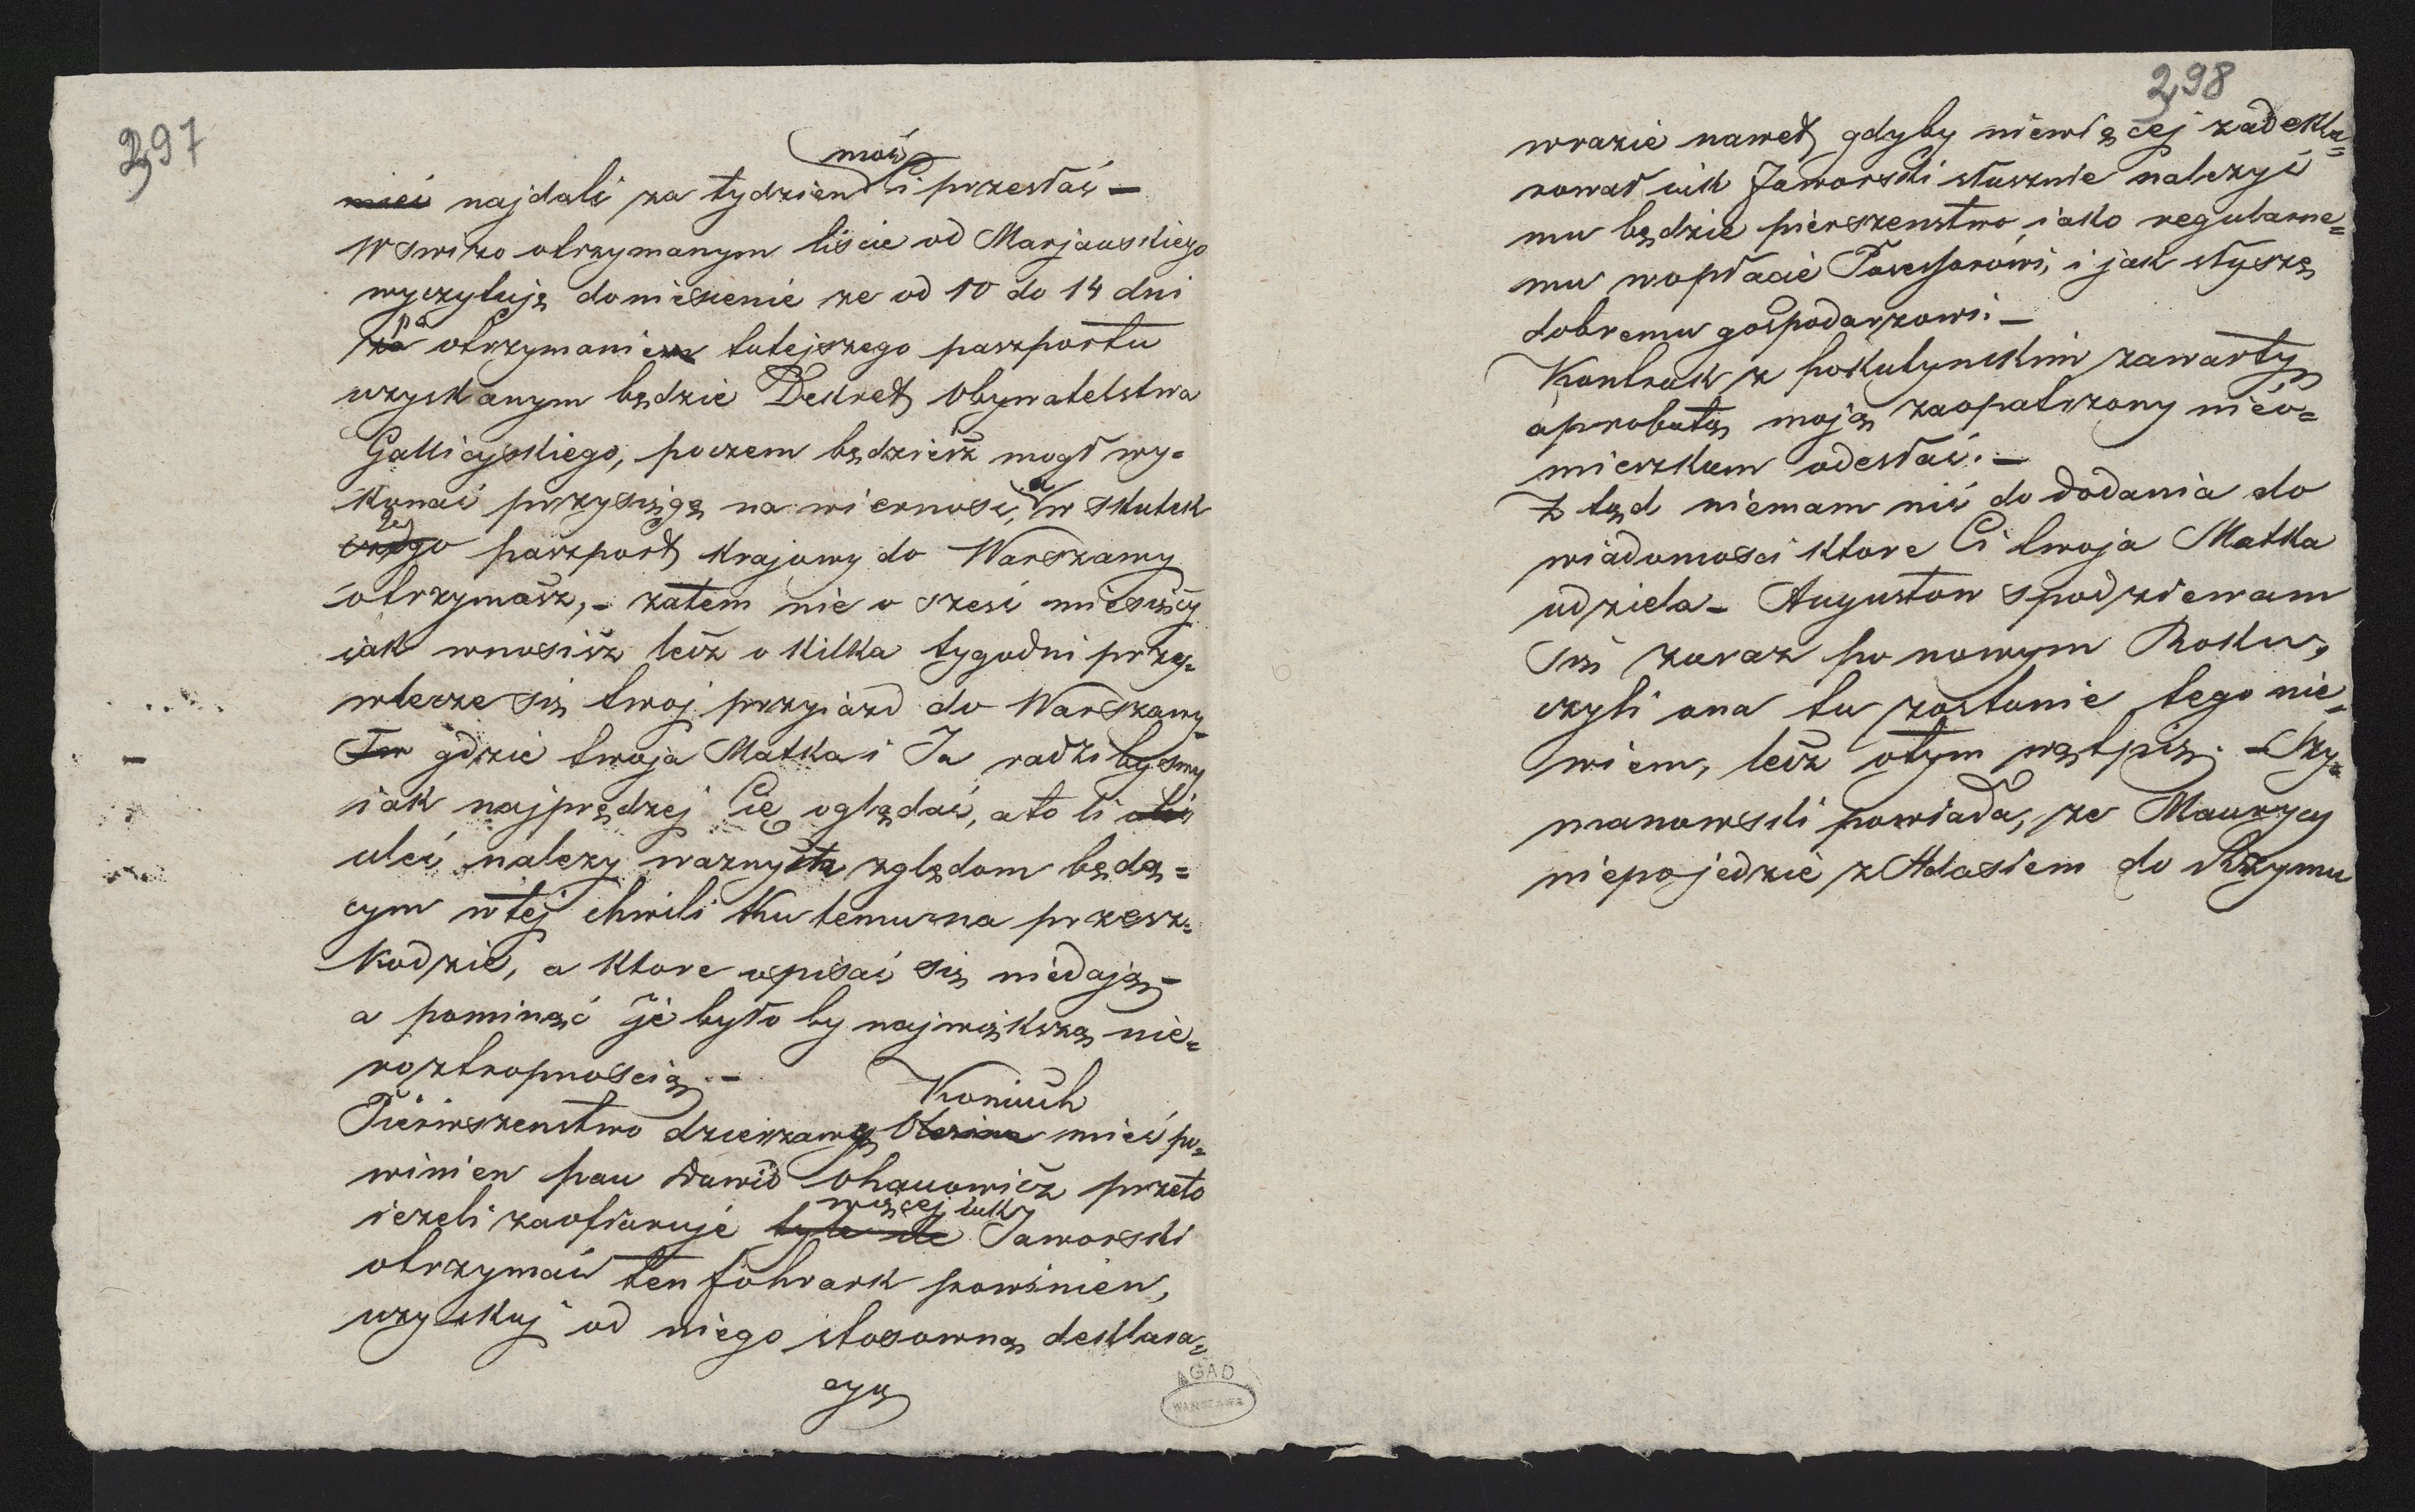 297
móć
mieć najdali za tydzien Ci przesłać —
W swizo otrzymanym liscie od Marjanskiego
wyczytuję doniesienie ze od 10 do 14 dni
po
za otrzymaniem tutejszego paszportu
uzyskanym będzie Dekret Obywatelstwa
Gallicyskiego, poczem będziesz mogł wy=
konać przysięgę na wiernosć, a w skutek
tej
czego paszport krajowy do Warszawy
otrzymasz, – zatem nie o szesć miesięcy
iak wnosisz lecz o kilka tygodni prze=
wlecze się twoj przyiazd do Warszawy
Tu gdzie twoja Matka i Ja radzi bysmy
iak najprędzej Cię oglądać, ato li
uleć nalezy waznym zględom będą=
cym w tej chwili ku temu na przesz=
kodzie, a ktore opisać się niedają –
a pominąć je było by największą nie=
roztropnoscią. –
Koniuch
Pierwszenstwo dzierzawy mieć po=
winien pan Dawid Ohanowicz przeto
więcej iak
iezeli zaofiaruje tyle ile Jaworski
otrzymać ten folwark powinien,
uzyskuj od niego stosowną deklara=
cyą
AGAD
WARSZAWA
298
wrazie nawet gdyby niewięcej zadekla=
rował iak Jaworski słusznie nalezyć
mu będzie pierszenstwo iako regularne=
mu wopłacie Possessorowi, i jak słyszę
dobremu gospodarzowi. –
Kontrakt z pokutynskim zawarty
aprobatą moją zaopatrzony nieo=
mieszkam odesłać. –
Z tąd niemam nic do dodania do
wiadomosci ktore Ci twoja Matka
udziela – Augustow spodziewam
się zaraz po nowym Roku,
czyli ona tu zostanie tego nie=
wiem, lecz otym wątpię. – Szy=
manowski powiada, ze Maurycy
niepojedzie z Adasiem do Rzymu